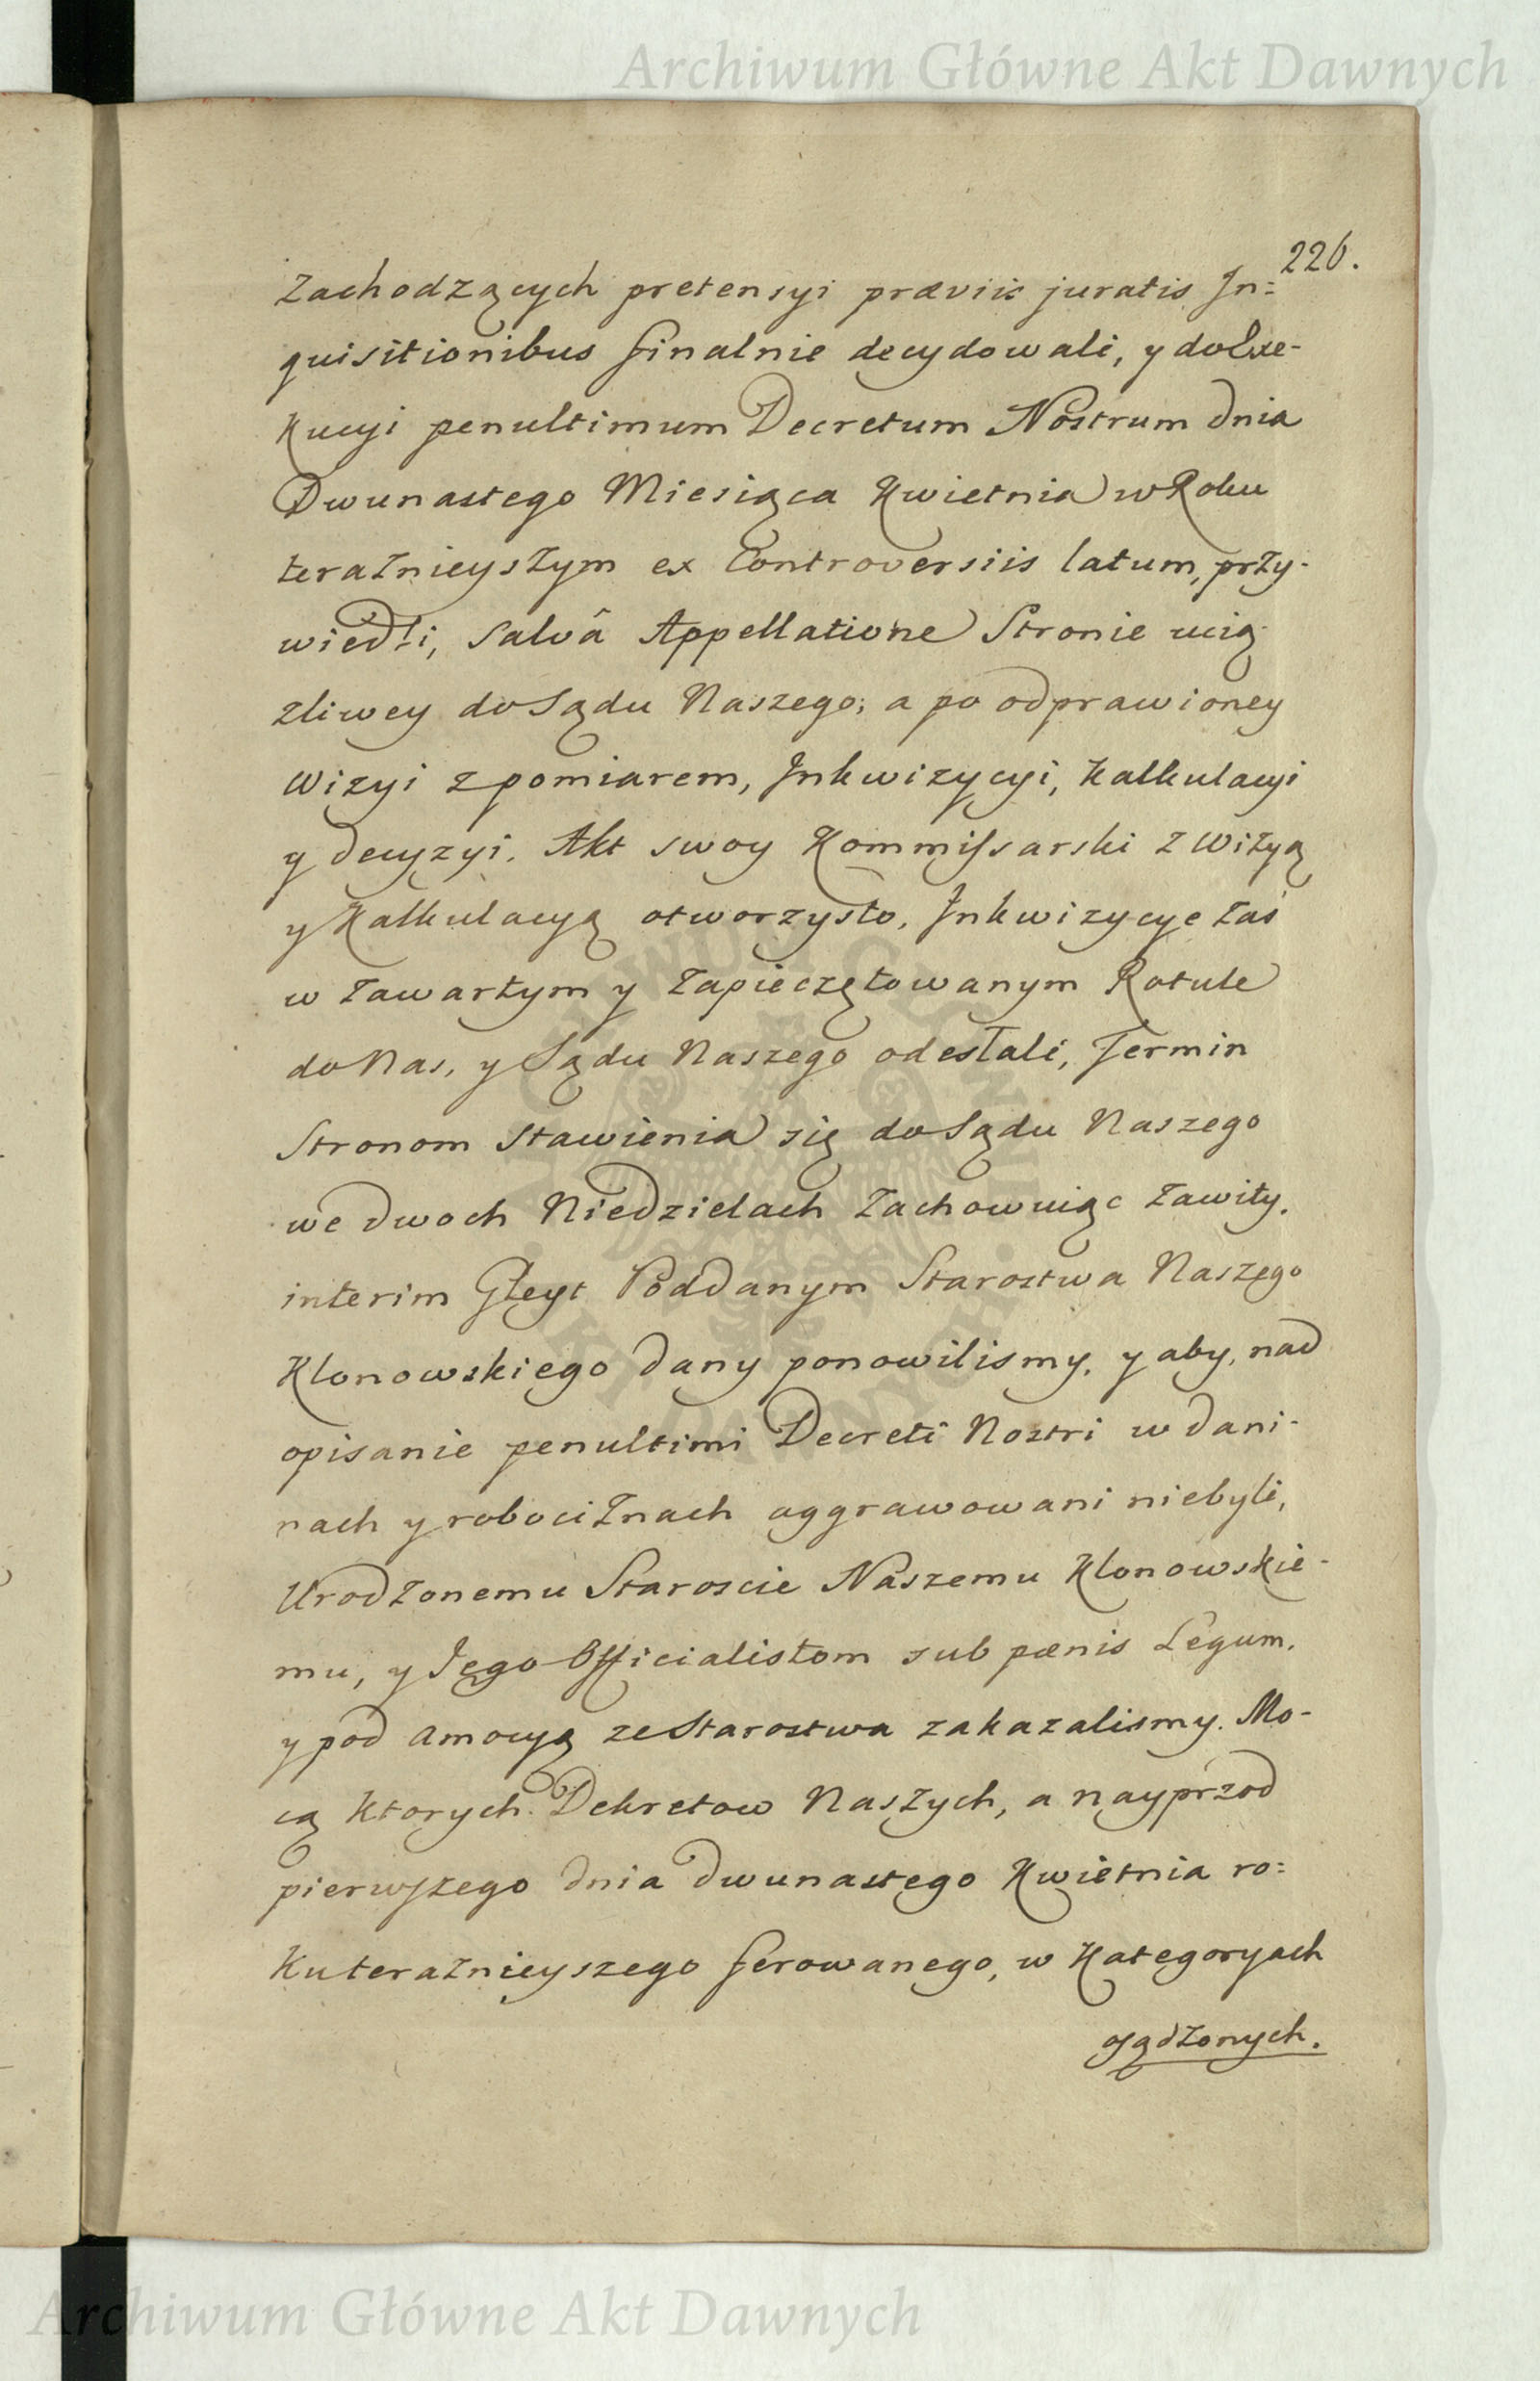 Archiwum Główne Akt Dawnych
226.
zachodzących pretensyi præviis juratis In=
quisitionibus finalnie decydowali, y do Exe-
kucyi penultimum Decretum Nostrum dnia
Dwunastego Miesiąca Kwietnia w Roku
teraznieyszym ex Controversiis latum, przy-
wiedli, salvâ Appellatione Stronie ucią-
zliwey do Sądu Naszego; a po odprawioney
Wizyi z pomiarem, Inkwizycyi, Kalkulacyi
y decyzyi. Akt swoy Kommissarski z Wizyą
y Kalkulacyą otworzysto, Inkwizycye zaś
w zawartym y zapieczętowanym Rotule
do Nas, y Sądu Naszego odesłali, Termin
Stronom stawienia się do Sądu Naszego
we dwoch Niedzielach zachowuiąc zawity.
interim Gleyt Poddanym Starostwa Naszego
Klonowskiego dany ponowilismy, y aby, nad
opisanie penultimi Decreti Nostri w dani-
nach y robociznach aggrawowani niebyli,
Urodzonemu Staroscie Naszemu Klonowskie-
mu, y Jego Officialistom sub pœnis Legum.
y pod amocyą ze Starostwa zakazalismy. Mo-
cą ktorych Dekretow Naszych, a nayprzod
pierwszego dnia dwunastego Kwietnia ro=
ku teraznieyszego ferowanego, w Kategoryach
osądzonych.
Archiwum Główne Akt Dawnych